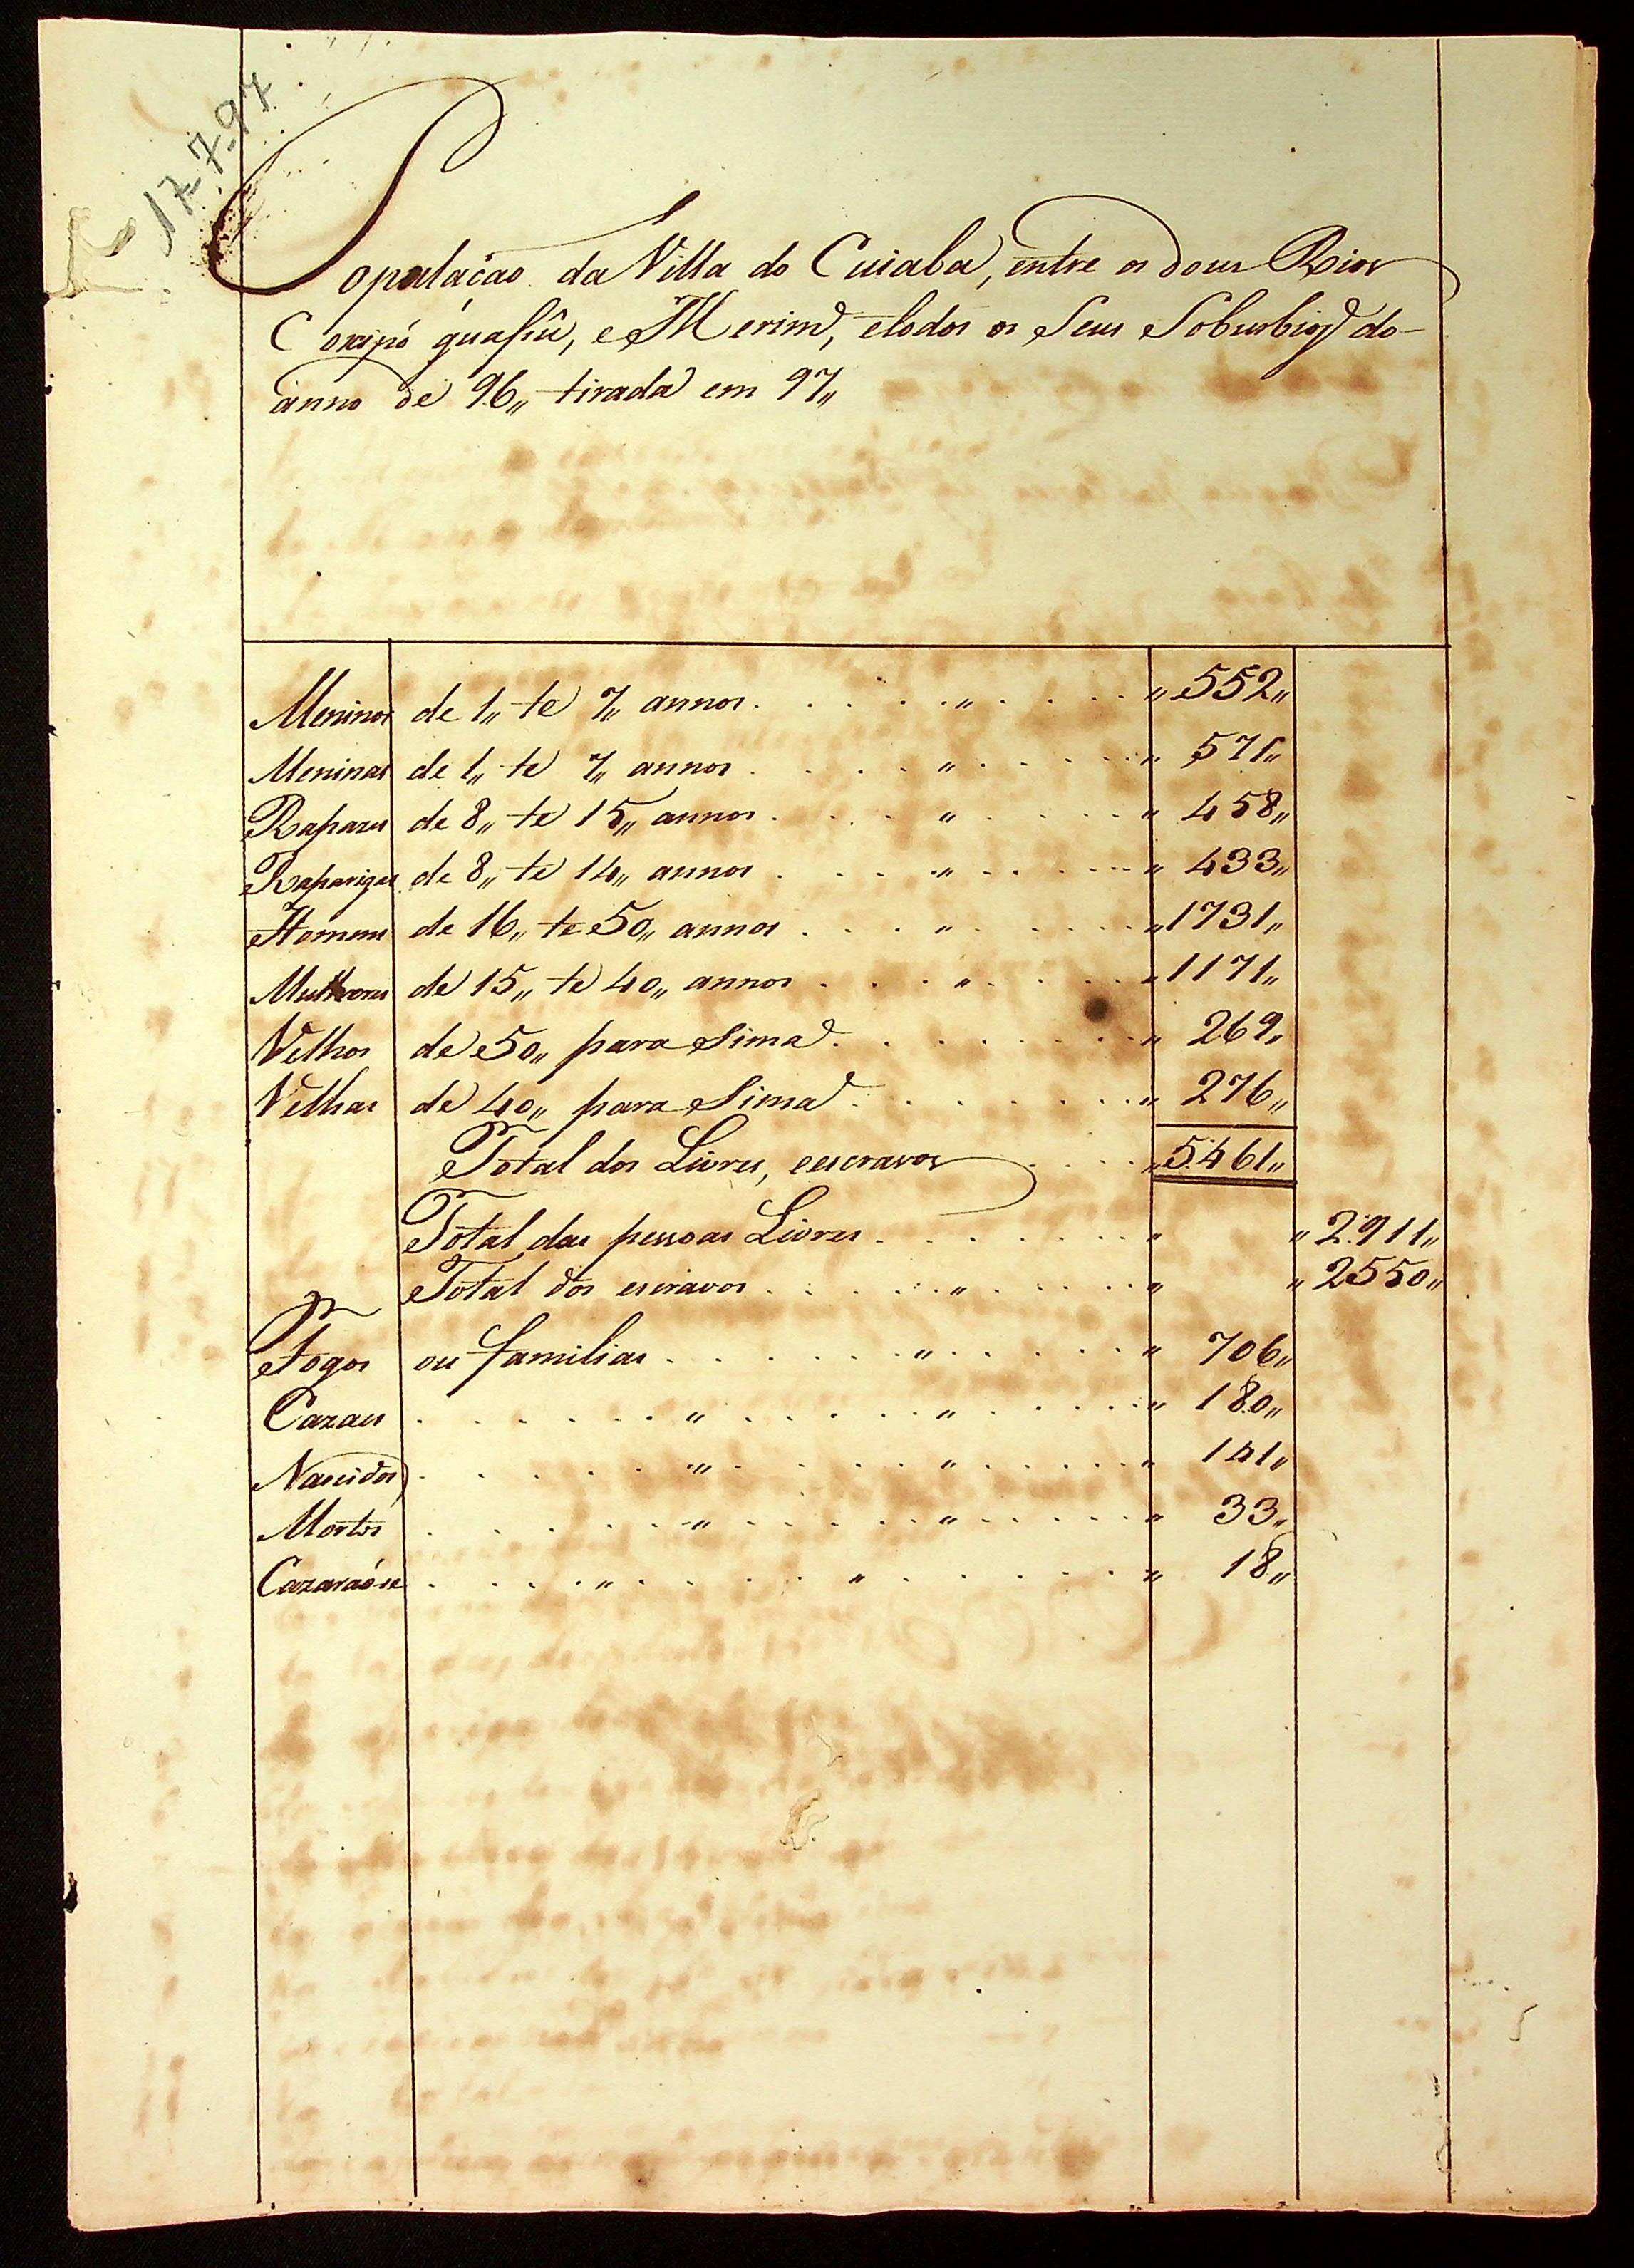 1797
Populaçao da Villa do Cuiaba, entre os dous Rios
Coxipó guassû, e Merim, etodos os Seus Soburbios do
anno de 96,, tirada em 97,,
Meninos de 1,, te 7,, annos . . . . . ,, . . . . ,, 552,,
Meninas de 1,, te 7,, annos . . . . ,, . . . . . ,, 571,,
Rapazes de 8,, te 15,, annos . . . . ,, . . . . . ,, 458,,
Raparigas de 8,, te 14,, annos . . . . ,, . . . . . ,, 433,,
Homens de 16,, te 50,, annos . . . . ,, . . . . . ,, 1731,,
Mulheres de 15,, te 40,, annos . . . . ,, . . . . ,, 1171,,
Velhos de 50,, para Sima . . . . . . . . ,, 269,,
Velhas de 40,, para Sima . . . . . . . . ,, 276,,
Total dos Livres, eescravos . . . . ,, 5.461,,
Total das pessoas Livres . . . . . . . ,, ,, 2.911,,
Total dos escravos . . . . . ,, . . . . . ,, ,, 2550,,
Fogos ou familias . . . . . . ,, . . . . . ,, 706,,
Cazaes . . . . . . ,, . . . . . ,, . . . . . ,, 180,,
Nascidos . . . . . . ,, . . . . . ,, . . . . . ,, 141,,
Mortos . . . . . . ,, . . . . . ,, . . . . . ,, 33,,
Cazaraóse . . . . ,, . . . . . ,, . . . . . . ,, 18,,